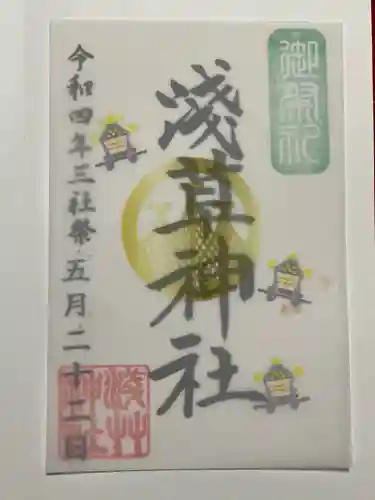 御祭礼
淺草神社
令和四年三社祭五月二十二日
淺草神社